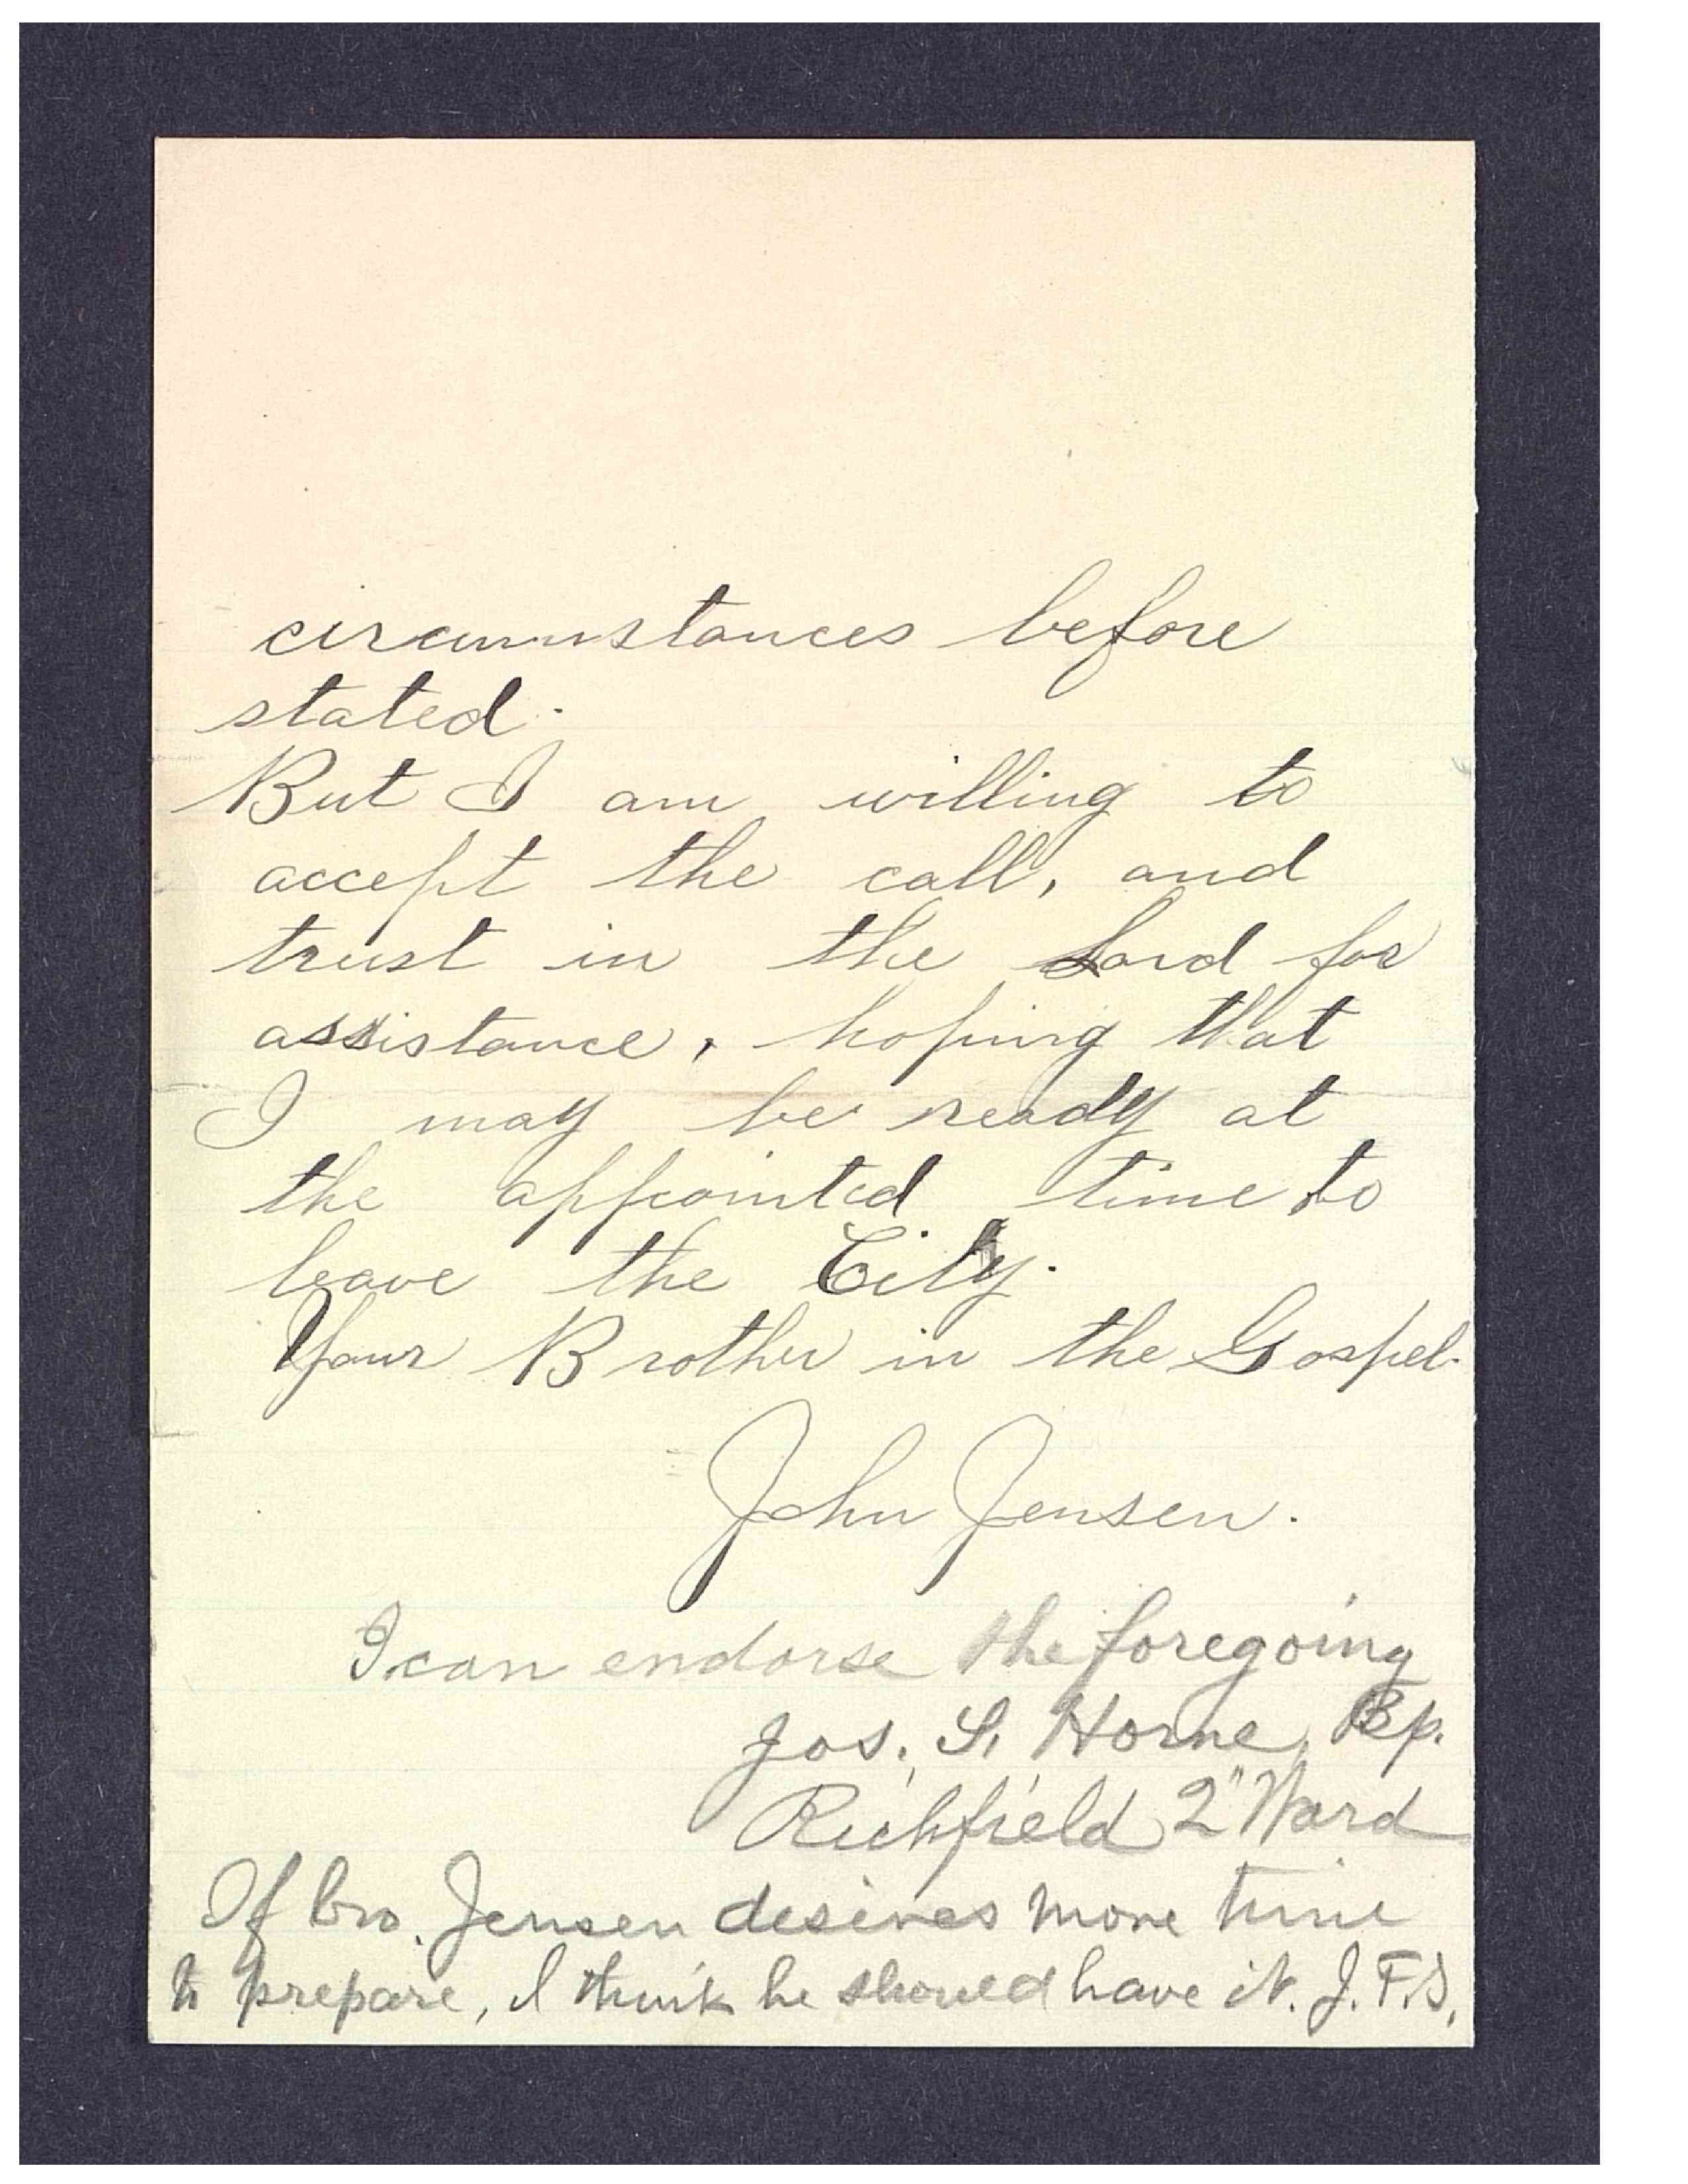 circumstances before
stated.
But I am willing to
accept the call, and
trust in the Lord for
assistance, hoping that
I may be ready at
the appointed time to
leave the City.
Your Brother in the Gospel.
John Jensen.
I can endorse the foregoing
Jos. S. Horne, Bp.
Richfield 2" Ward
If bro. Jensen desires more time
to prepare, I think he should have it. J.F.S.